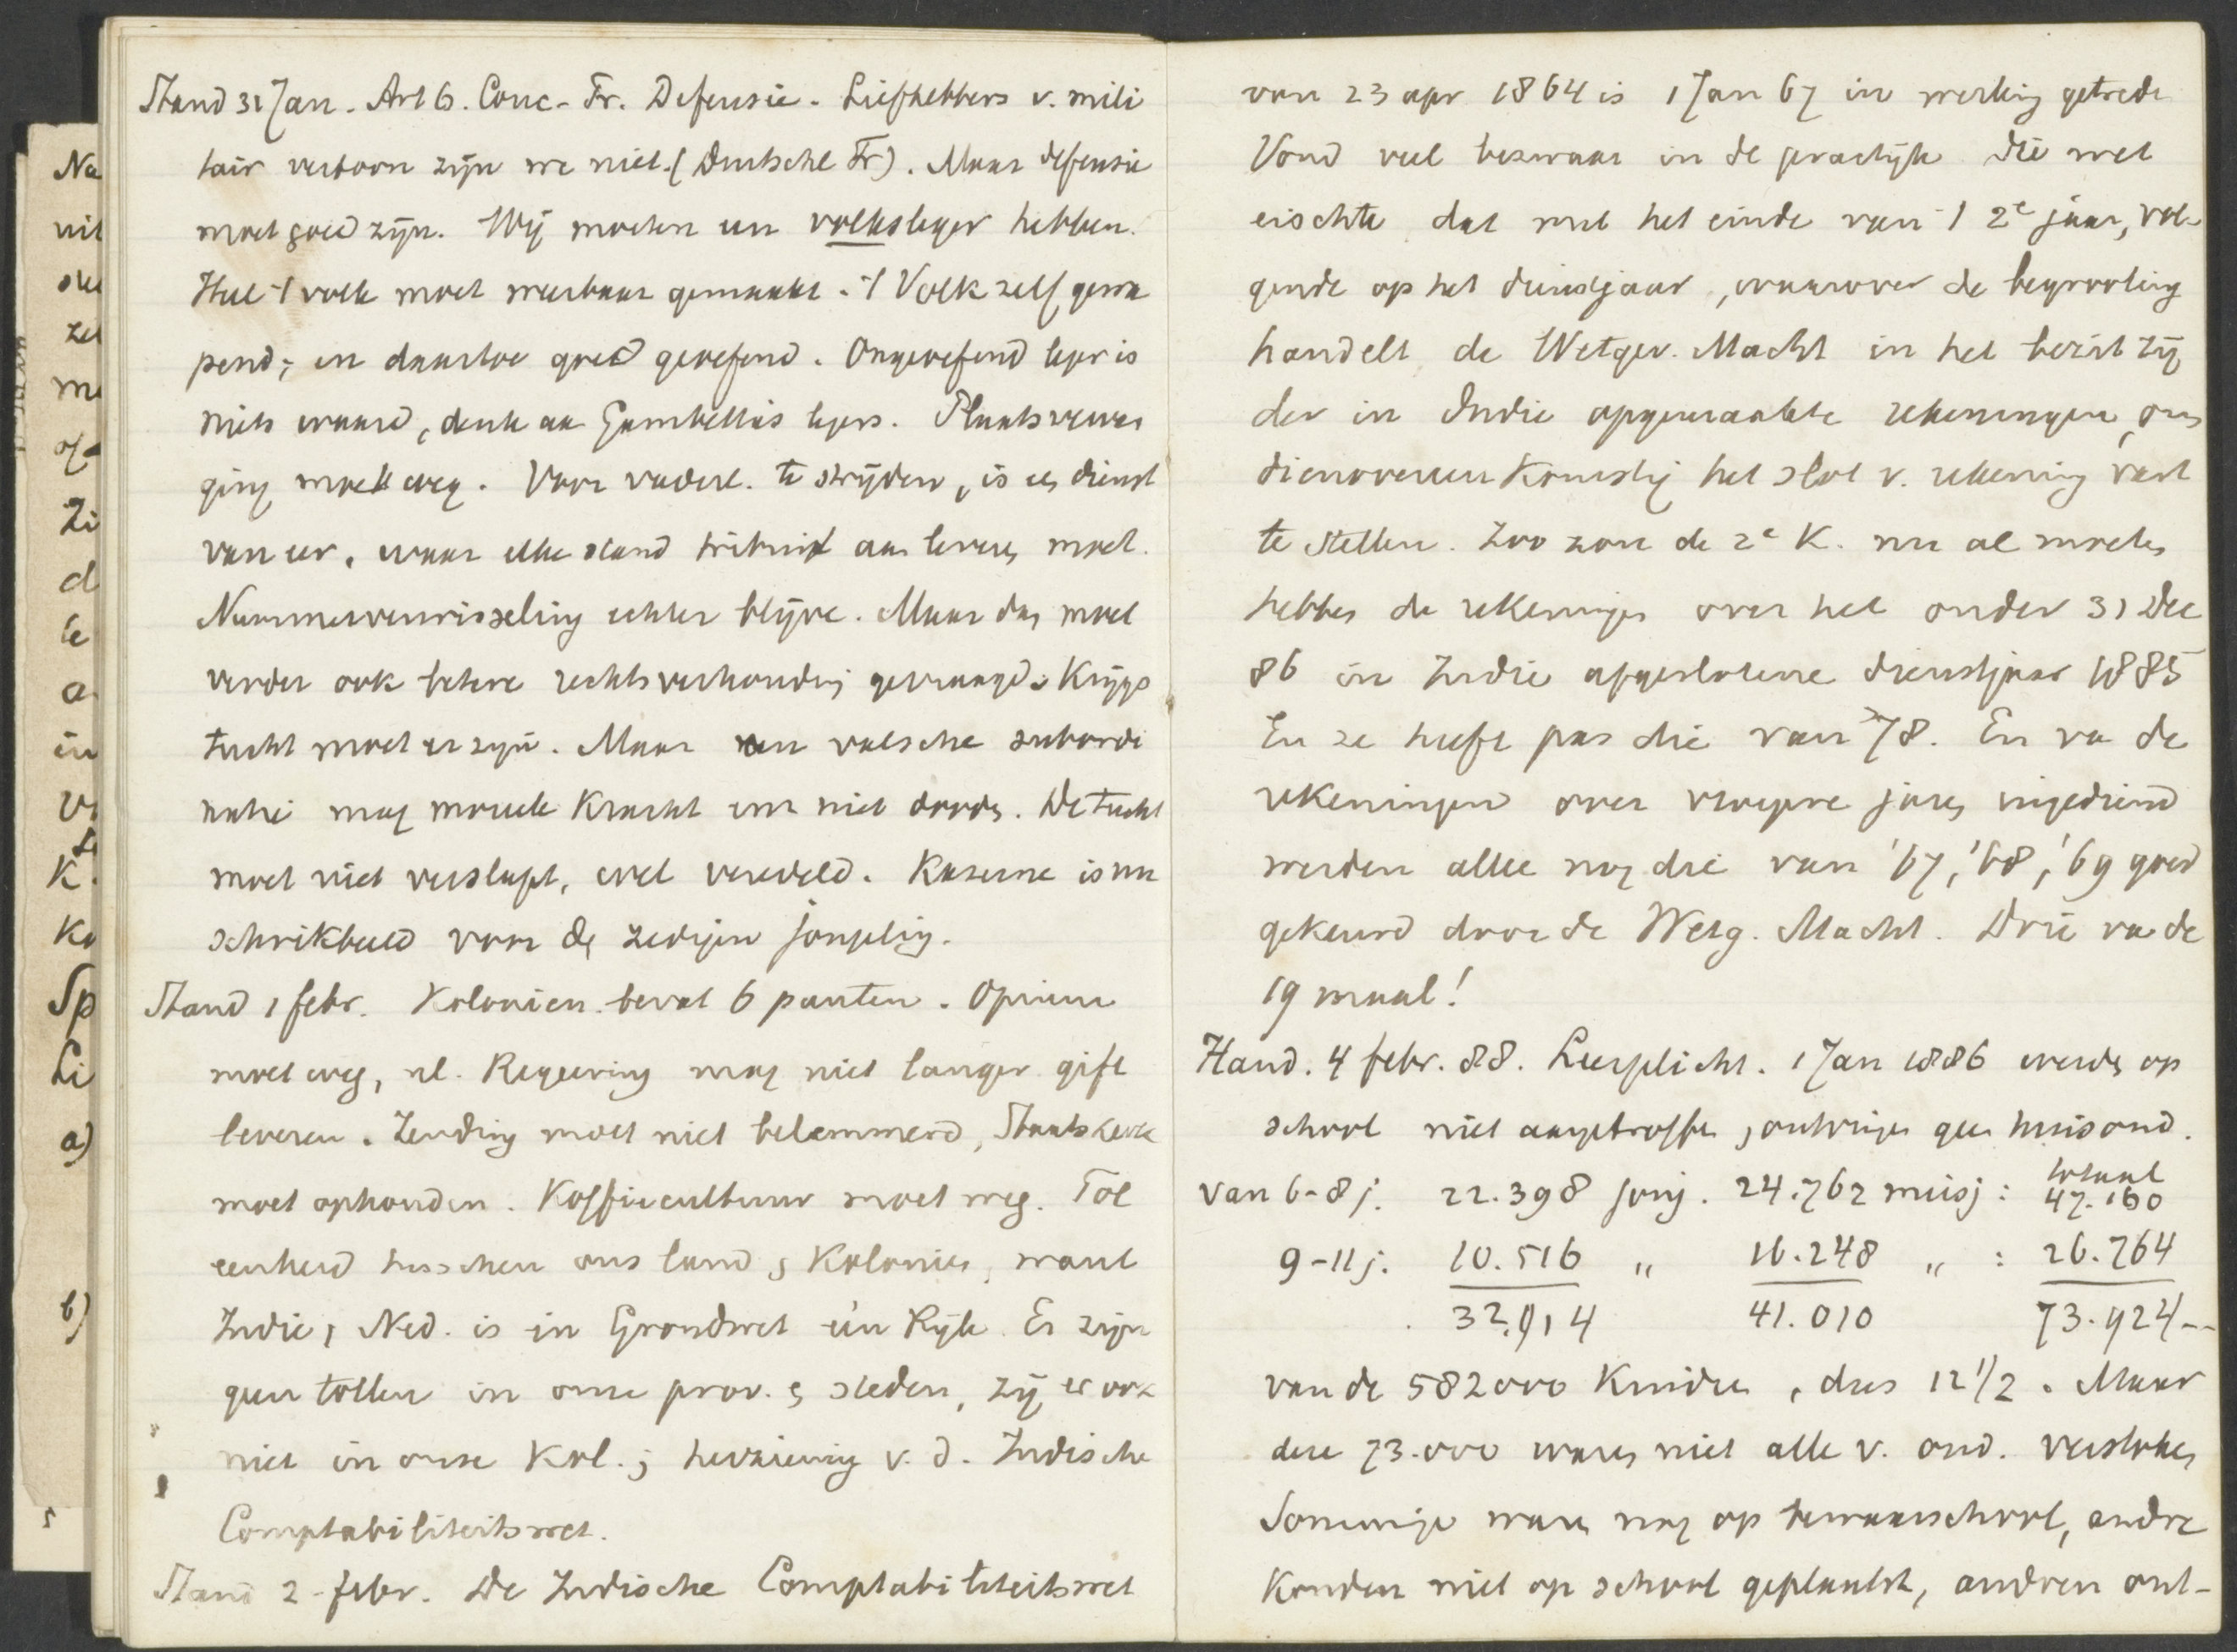 Stand 31 Jan. Art 6. Conc-Fr. Defensie. Liefhebbers v. mili
tair vertoon zijn we niet. (Duitsche Fr). Maar defensie
moet goed zijn. Wij moeten een volksleger hebben.
Heel 't volk moet weerbaar gemaakt. 't Volk zelf gewa
pend; en daartoe goed geoefend. Ongeoefend leger is
niets waard, denk aan Gambetta's legers. Plaatsverva
ging moet weg. Voor vaderl. te strijden, is een dienst
van eer, waar elke stand tribuut aan leveren moet.
Nummerverwisseling echter blijve. Maar dan moet
verder ook betere rechtsverhouding gevraagd. Krijgs
tucht moet er zijn. Maar een valsche subordi
natie mag moreele kracht er niet dooden. De tucht
moet niet verslapt, wel veredeld. Kaserne is nu
schrikbeeld voor den zedigen jongeling.
Stand 1 febr. Kolonien bevat 6 punten. Opium
moet weg, nl. Regeering mag niet langer gift
leveren. Zending moet niet belemmerd, Staatskerk
moet ophouden. Koffiecultuur moet weg. Tol
eenheid tusschen ons land & Kolonies, want
Indie & Ned. is in Grondwet één Rijk. Er zijn
geen tollen in onze prov. & steden, zij er ook
niet in onze Kol.; herziening v. d. Indische
Comptabiliteitswet.
Stand 2-febr. De Indische Comptabiliteitswet
van 23 apr 1864 is 1 Jan 67 in werking getrede
Vond veel bezwaar in de practijk die wet
eischte dat met het einde van 't 2e jaar, vol-
gende op het dienstjaar, waarover de begrooting
handelt de Wetgev. Macht in het bezit zij
der in Indie opgemaakte rekeningen, om
dienovereenkomstig het slot v. rekening vast
te stellen. Zoo zou de 2e K. nu al moeten
hebben de rekeningen over het onder 31 Dec
86 in Indie afgeslotene dienstjaar 1885
En ze heeft pas die van '78. En van de
rekeningen over vroegere jaren ingediend
werden alleen nog die van '67, '68, '69 goed
gekeurd door de Wetg. Macht. Drie van de
19 maal!
Hand. 4 febr. 88. Leerplicht. 1 Jan 1886 werden op
school niet aangetroffen, ontvingen geen huisond.
totaal
van 6-8 j. 22.398 jong. 24.762 meisj: 47.160
9-11 j. 10.516 " 16.248 " : 26.764
32.914 41.010 73.924--
van de 582000 Kinderen, dus 12 1/2. Maar
deze 73.000 waren niet alle v. ond. verstoken
Sommige waren nog op bewaarschool, andre
konden niet op school geplaatst, andren ont-
Na
uit
zel
Zi
d
te
a
in
K.
Ko
Sp
Li
a)
b)